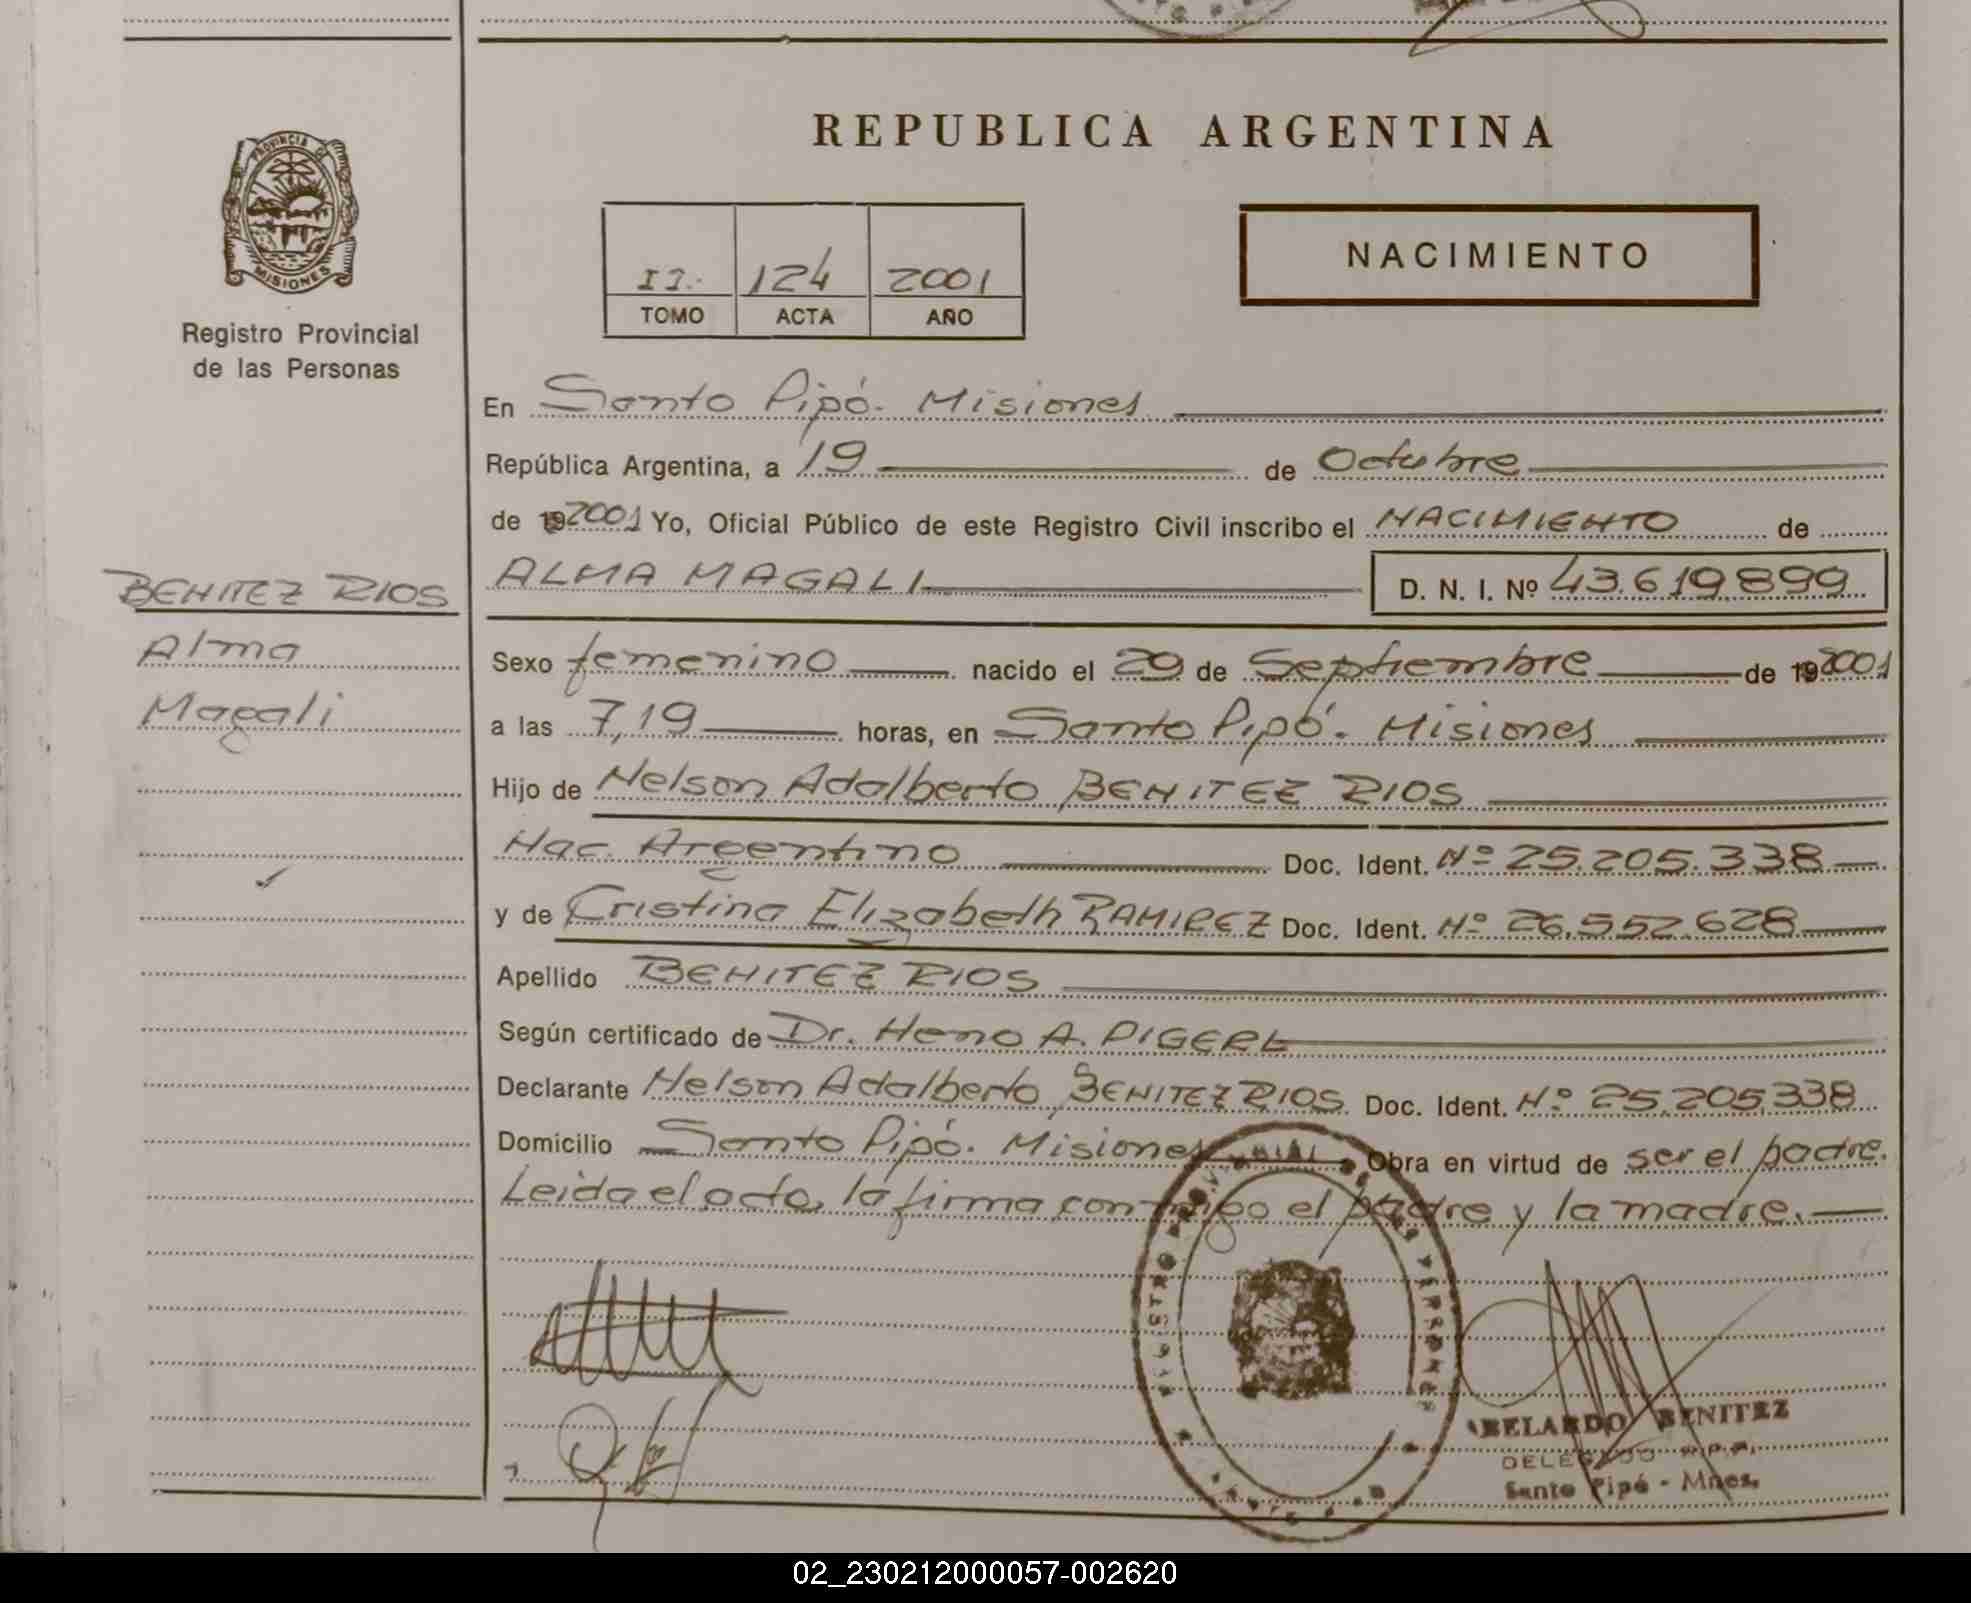 REPUBLICA ARGENTINA
PROVINCIA DE
MISIONES
Registro Provincial
de las Personas
II.- 124 2001
TOMO ACTA AÑO
NACIMIENTO
En Santo Pipó.- Misiones
República Argentina, a 19 de Octubre
de 19 2001 Yo, Oficial Público de este Registro Civil inscribo el NACIMIENTO de
ALMA MAGALI D. N. I. Nº 43.619.899
BENITEZ RIOS
Alma
Magali
Sexo femenino nacido el 29 de Septiembre de 19 2001
a las 7,19 horas, en Santo Pipó.- Misiones
Hijo de Nelson Adalberto BENITEZ RIOS
Nac. Argentino Doc. Ident. Nº 25.205.338
y de Cristina Elizabeth RAMIREZ Doc. Ident. Nº 26.552.628
Apellido BENITEZ RIOS
Según certificado de Dr. Heno A. PIGERL
Declarante Nelson Adalberto BENITEZ RIOS Doc. Ident. Nº 25.205.338
Domicilio Santo Pipó.- Misiones Obra en virtud de ser el padre.
Leida el acta, la firma conmigo el padre y la madre.
ABELARDO BENITEZ
DELEGADO R.P.P.
Santo Pipó - Mnes.
02_230212000057-002620